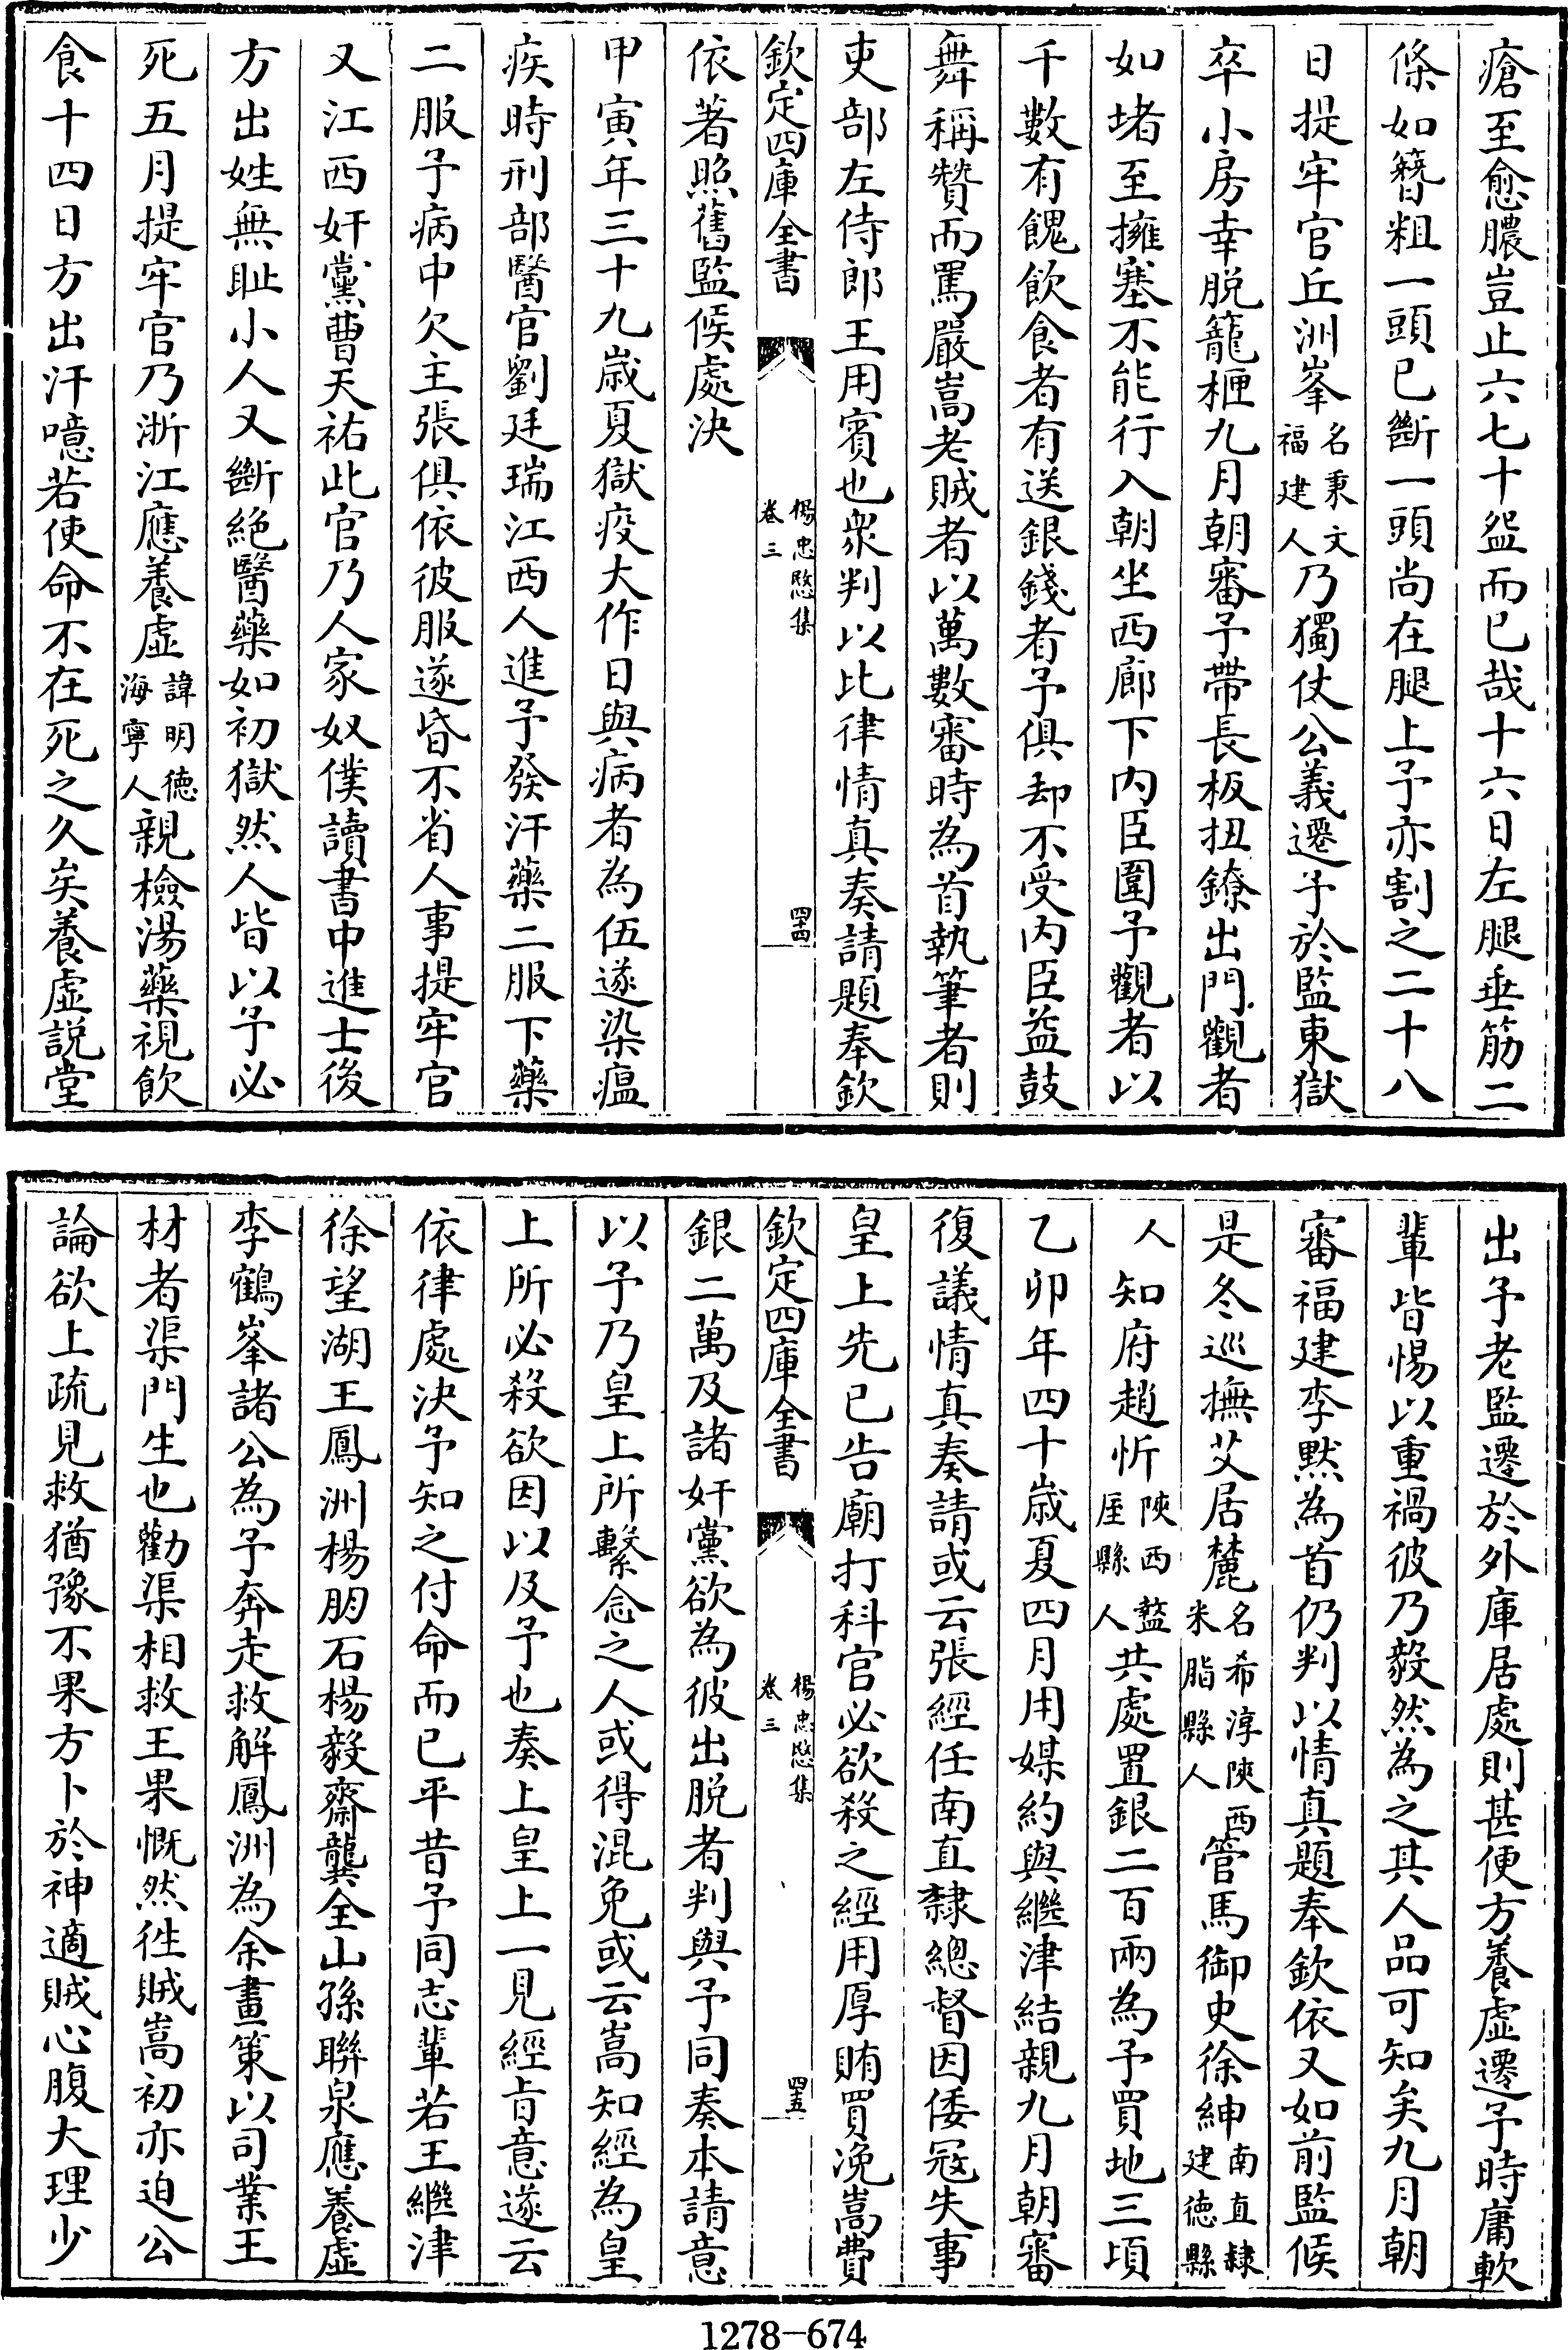 瘡至愈膿豈止六七十盌而已哉十六日左腿垂筋二
條如簪粗一頭已斷一頭尚在腿上予亦割之二十八
日提牢官丘洲峯名秉文福建人乃獨仗公義遷予於監東獄
卒小房幸脱籠柙九月朝審予帶長板扭鐐出門觀者
如堵至擁塞不能行入朝坐西廊下内臣圍予觀者以
千數有餽飲食者有送銀錢者予俱却不受内臣益鼓
舞稱贊而罵嚴嵩老賊者以萬數審時為首執筆者則
吏部左侍郎王用賓也衆判以比律情真奏請題奉欽
欽定四庫全書 楊忠愍集 卷三 四十四
依著照舊監候處決
甲寅年三十九歲夏獄疫大作日與病者為伍遂染瘟
疾時刑部醫官劉廷瑞江西人進予發汗藥二服下藥
二服予病中欠主張俱依彼服遂昏不省人事提牢官
又江西奸黨曹天祐此官乃人家奴僕讀書中進士後
方出姓無耻小人又斷絶醫藥如初獄然人皆以予必
死五月提牢官乃浙江應養虛諱明德海寧人親檢湯藥視飲
食十四日方出汗噫若使命不在死之久矣養虛説堂
出予老監遷於外庫居處則甚便方養虛遷予時庸軟
輩皆惕以重禍彼乃毅然為之其人品可知矣九月朝
審福建李黙為首仍判以情真題奉欽依又如前監候
是冬巡撫艾居麓名希淳陝西米脂縣人管馬御史徐紳南直隸建德縣
人知府趙忻陝西盩厔縣人共處置銀二百兩為予買地三頃
乙卯年四十歲夏四月用媒約與繼津結親九月朝審
復議情真奏請或云張經任南直隸總督因倭冦失事
皇上先已告廟打科官必欲殺之經用厚賄買浼嵩費
欽定四庫全書 楊忠愍集 卷三 四十五
銀二萬及諸奸黨欲為彼出脱者判與予同奏本請意
以予乃皇上所繫念之人或得混免或云嵩知經為皇
上所必殺欲因以及予也奏上皇上一見經㫖意遂云
依律處決予知之付命而已平昔予同志輩若王繼津
徐望湖王鳳洲楊朋石楊毅齋龔全山孫聯泉應養虛
李鶴峯諸公為予奔走救解鳳洲為余畫策以司業王
材者渠門生也勸渠相救王果慨然徃賊嵩初亦迫公
論欲上疏見救猶豫不果方卜於神適賊心腹大理少
1278—674